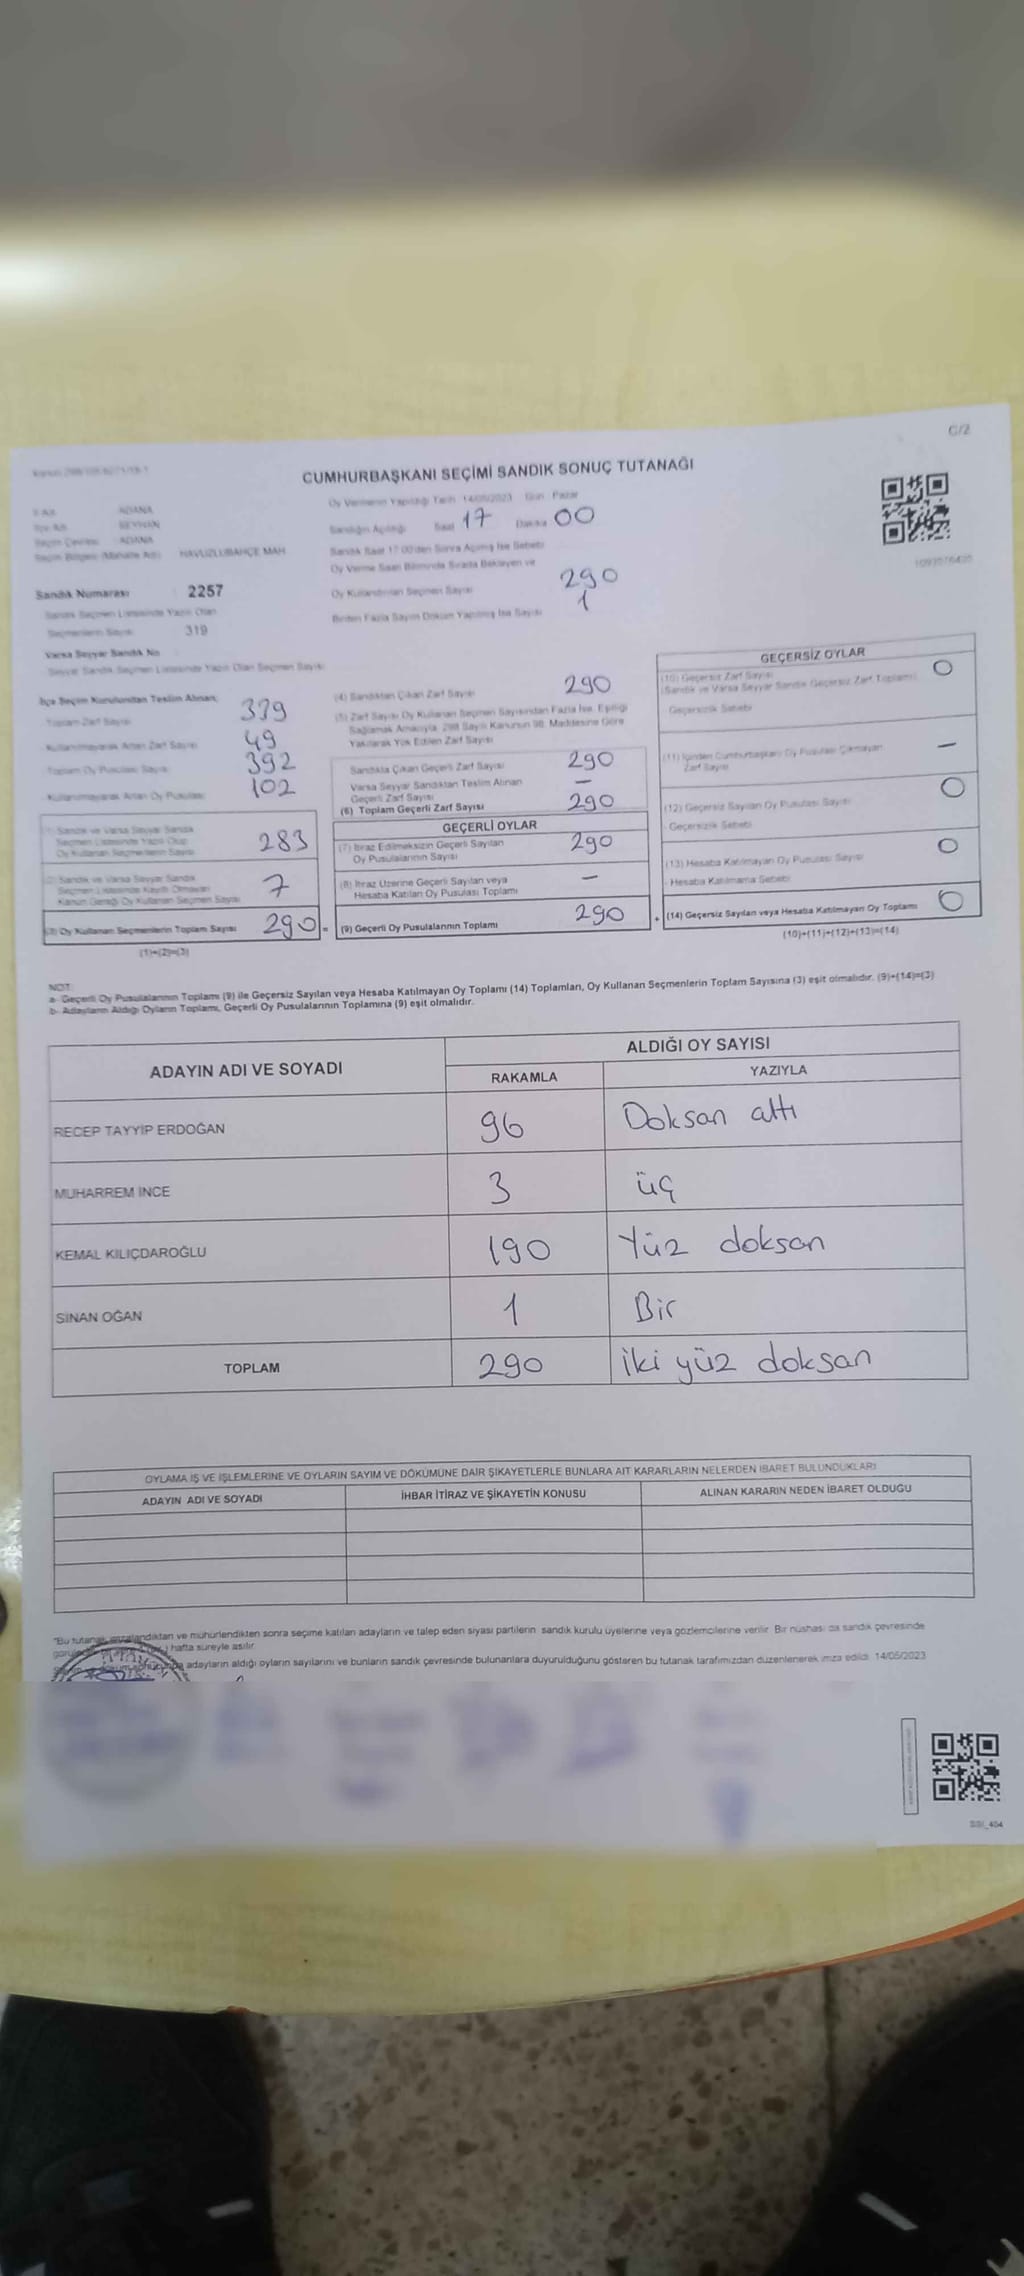 C/2
CUMHURBAŞKANI SEÇİMİ SANDIK SONUÇ TUTANAĞI
Oy Vermenin Yapıldığı Tarih 14/05/2023 Gün Pazar
İl Adı ADANA
İlçe Adı SEYHAN
Seçim Çevresi ADANA
Seçim Bölgesi (Mahalle Adı) HAVUZLUBAHÇE MAH.
Sandığın Açıldığı Saat 17 Dakika 00
Sandık Saat 17:00'den Sonra Açılmış İse Sebebi
Oy Verme Saati Bitiminde Sırada Bekleyen ve
Oy Kullandırılan Seçmen Sayısı 290
Birden Fazla Sayım Döküm Yapılmış İse Sayısı 1
Sandık Numarası 2257
Sandık Seçmen Listesinde Yazılı Olan
Seçmenlerin Sayısı 319
Varsa Seyyar Sandık No
Seyyar Sandık Seçmen Listesinde Yazılı Olan Seçmen Sayısı
İlçe Seçim Kurulundan Teslim Alınan;
Toplam Zarf Sayısı 339
Kullanılmayarak Artan Zarf Sayısı 49
Toplam Oy Pusulası Sayısı 392
Kullanılmayarak Artan Oy Pusulası 102
(1) Sandık ve Varsa Seyyar Sandık
Seçmen Listesinde Yazılı Olup
Oy Kullanan Seçmenlerin Sayısı 283
(2) Sandık ve Varsa Seyyar Sandık
Seçmen Listesinde Kayıtlı Olmayan
Kanun Gereği Oy Kullanan Seçmen Sayısı 7
(3) Oy Kullanan Seçmenlerin Toplam Sayısı 290 =
(1)+(2)=(3)
(4) Sandıktan Çıkan Zarf Sayısı 290
(5) Zarf Sayısı Oy Kullanan Seçmen Sayısından Fazla İse, Eşitliği
Sağlamak Amacıyla, 298 Sayılı Kanunun 98. Maddesine Göre
Yakılarak Yok Edilen Zarf Sayısı
Sandıkta Çıkan Geçerli Zarf Sayısı 290
Varsa Seyyar Sandıktan Teslim Alınan
Geçerli Zarf Sayısı —
(6) Toplam Geçerli Zarf Sayısı 290
GEÇERLİ OYLAR
(7) İtiraz Edilmeksizin Geçerli Sayılan
Oy Pusulalarının Sayısı 290
(8) İtiraz Üzerine Geçerli Sayılan veya
Hesaba Katılan Oy Pusulası Toplamı —
(9) Geçerli Oy Pusulalarının Toplamı 290 +
GEÇERSİZ OYLAR
(10) Geçersiz Zarf Sayısı
(Sandık ve Varsa Seyyar Sandık Geçersiz Zarf Toplamı) 0
Geçersizlik Sebebi
(11) İçinden Cumhurbaşkanı Oy Pusulası Çıkmayan
Zarf Sayısı —
(12) Geçersiz Sayılan Oy Pusulası Sayısı 0
Geçersizlik Sebebi
(13) Hesaba Katılmayan Oy Pusulası Sayısı 0
Hesaba Katılmama Sebebi
(14) Geçersiz Sayılan veya Hesaba Katılmayan Oy Toplamı 0
(10)+(11)+(12)+(13)=(14)
NOT:
a- Geçerli Oy Pusulalarının Toplamı (9) ile Geçersiz Sayılan veya Hesaba Katılmayan Oy Toplamı (14) Toplamları, Oy Kullanan Seçmenlerin Toplam Sayısına (3) eşit olmalıdır. (9)+(14)=(3)
b- Adayların Aldığı Oyların Toplamı, Geçerli Oy Pusulalarının Toplamına (9) eşit olmalıdır.
ADAYIN ADI VE SOYADI ALDIĞI OY SAYISI
RAKAMLA YAZIYLA
RECEP TAYYİP ERDOĞAN 96 Doksan altı
MUHARREM İNCE 3 üç
KEMAL KILIÇDAROĞLU 190 Yüz doksan
SİNAN OĞAN 1 Bir
TOPLAM 290 iki yüz doksan
OYLAMA İŞ VE İŞLEMLERİNE VE OYLARIN SAYIM VE DÖKÜMÜNE DAİR ŞİKAYETLERLE BUNLARA AİT KARARLARIN NELERDEN İBARET BULUNDUKLARI
ADAYIN ADI VE SOYADI İHBAR İTİRAZ VE ŞİKAYETİN KONUSU ALINAN KARARIN NEDEN İBARET OLDUĞU
"Bu tutanak imzalandıktan ve mühürlendikten sonra seçime katılan adayların ve talep eden siyasi partilerin sandık kurulu üyelerine veya gözlemcilerine verilir. Bir nüshası da sandık çevresinde
hafta süreyle asılır.
adayların aldığı oyların sayılarını ve bunların sandık çevresinde bulunanlara duyurulduğunu gösteren bu tutanak tarafımızdan düzenlenerek imza edildi. 14/05/2023